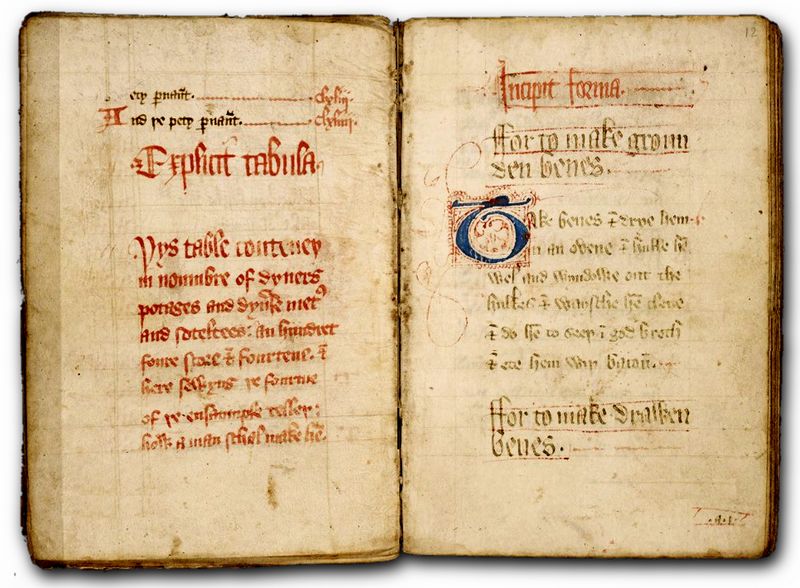 ety ꝑuaūt. cxliij.
And ye pety ꝑuaūt. cxliiij.
Explicit tabula.
Þys table conteney
in noumbre of dyners
potages and dyūse metꝭ
and soteltees: an hundret
foure score & fourtene. &
here sewyng ye fourme
of ye ensample telleþ:
how a man schal make hē.
12
Incipit forma.
ffor to make groun
den benes.
Take benes & drye hem
in an ovene & hulle hē
wel and wyndowe out the
hulkes & waysche hē clene
& do hē to seeþ ī god broth
& ete hem wiþ bacūn.
ffor to make drawen
benes.